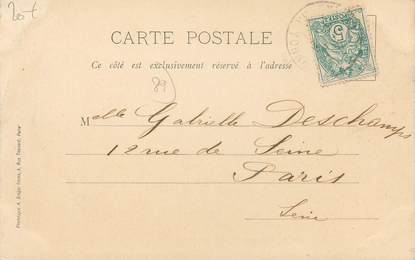 20 €
CARTE POSTALE
Ce côté est exclusivement réservé à l'adresse
89
5
Melle Gabrielle Deschamps
12 rue de Seine
Paris
Seine